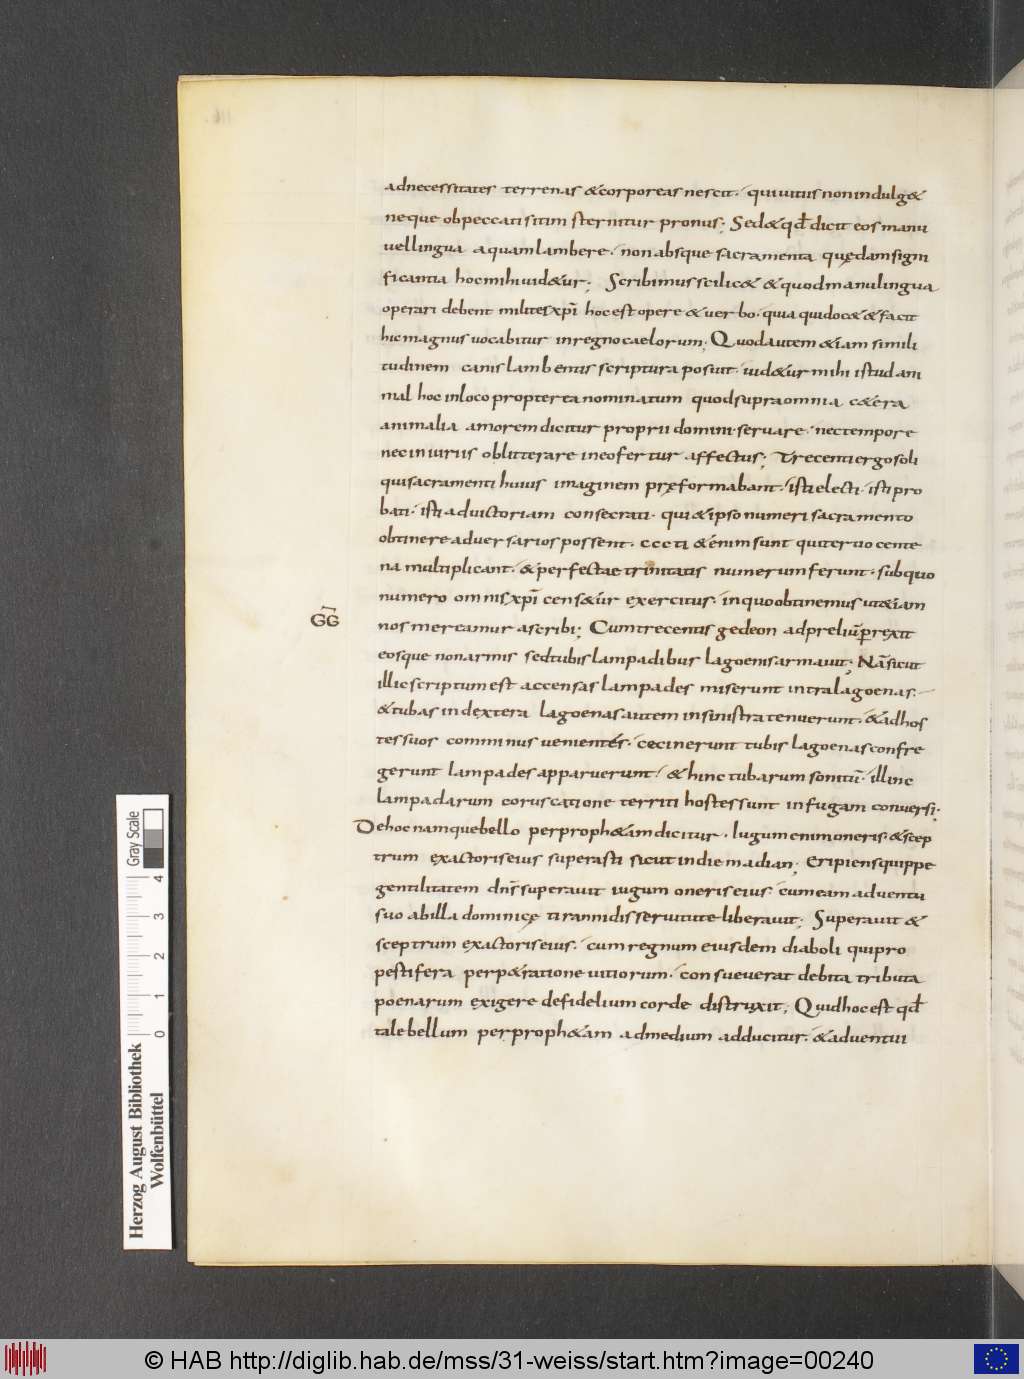 adnecessitates terrenas & corporeas nescit. qui uitiis non indulg&
neque ob peccati sitim sternitur pronus; Sed & qd̄ dicit eos manu
uel lingua aquam lambere. non absque sacramenta quędam signi
ficantia hoc mihi uid&ur; Scribimus scilic& & quod manu lingua
operari debent milites xp̄i hoc est opere & uerbo. quia qui doc& & facit
hic magnus uocabitur in regno caelorum; Quod autem & iam simili
tudinem canis lambentis scriptura posuit. uid&ur mihi istud ani
mal hoc in loco propterea nominatum quod supra omnia c&era
animalia amorem dicitur proprii domini seruare. nec tempore
nec iniuriis oblitterare in eo fertur affectus; Trecenti ergo soli
qui sacramenti huius imaginem pręformabant. isti electi. isti pro
bati. isti ad uictoriam consecrati. qui & ipso numeri sacramento
obtinere aduersarios possent. ccc ti &enim sunt qui ter uocente
na multiplicant. & perfectae trinitatis numerum ferunt. sub quo
numero omnis xp̄i cens&ur exercitus. in quo obtinemus ut &iam
nos mereamur ascribi; Cum trecentis gedeon ad preliū perrexit
GḠ
eosque non armis sed tubis lampadibus lagoenis armauit; Nā sicut
illic scriptum est accensas lampades miserunt intra lagoenas.
& tubas in dextera lagoenas autem in sinistra tenuerunt. & ad hos
tes suos comminus uenientes. cecinerunt tubis lagoenas confre
gerunt lampades apparuerunt. & hinc tubarum sonitū. illinc
lampadarum coruscatione territi hostes sunt in fugam conuersi;
De hoc namque bello per proph&am dicitur. Iugum enim oneris. & scep
trum exactoris eius superasti sicut in die madian; Eripiens quippe
gentilitatem dn̄s superauit iugum oneris eius. cum eam aduentu
suo ab illa dominicę tirannidis seruitute liberauit; Superauit &
sceptrum exactoris eius. cum regnum eiusdem diaboli qui pro
pestifera perp&ratione uitiorum. consueuerat debita tributa
poenarum exigere de fidelium corde distruxit; Quid hoc est qd̄
tale bellum per proph&am ad medium adducitur. & aduentui
Herzog August Bibliothek
Wolfenbüttel
0 1 2 3 4
Gray Scale
© HAB http://diglib.hab.de/mss/31-weiss/start.htm?image=00240